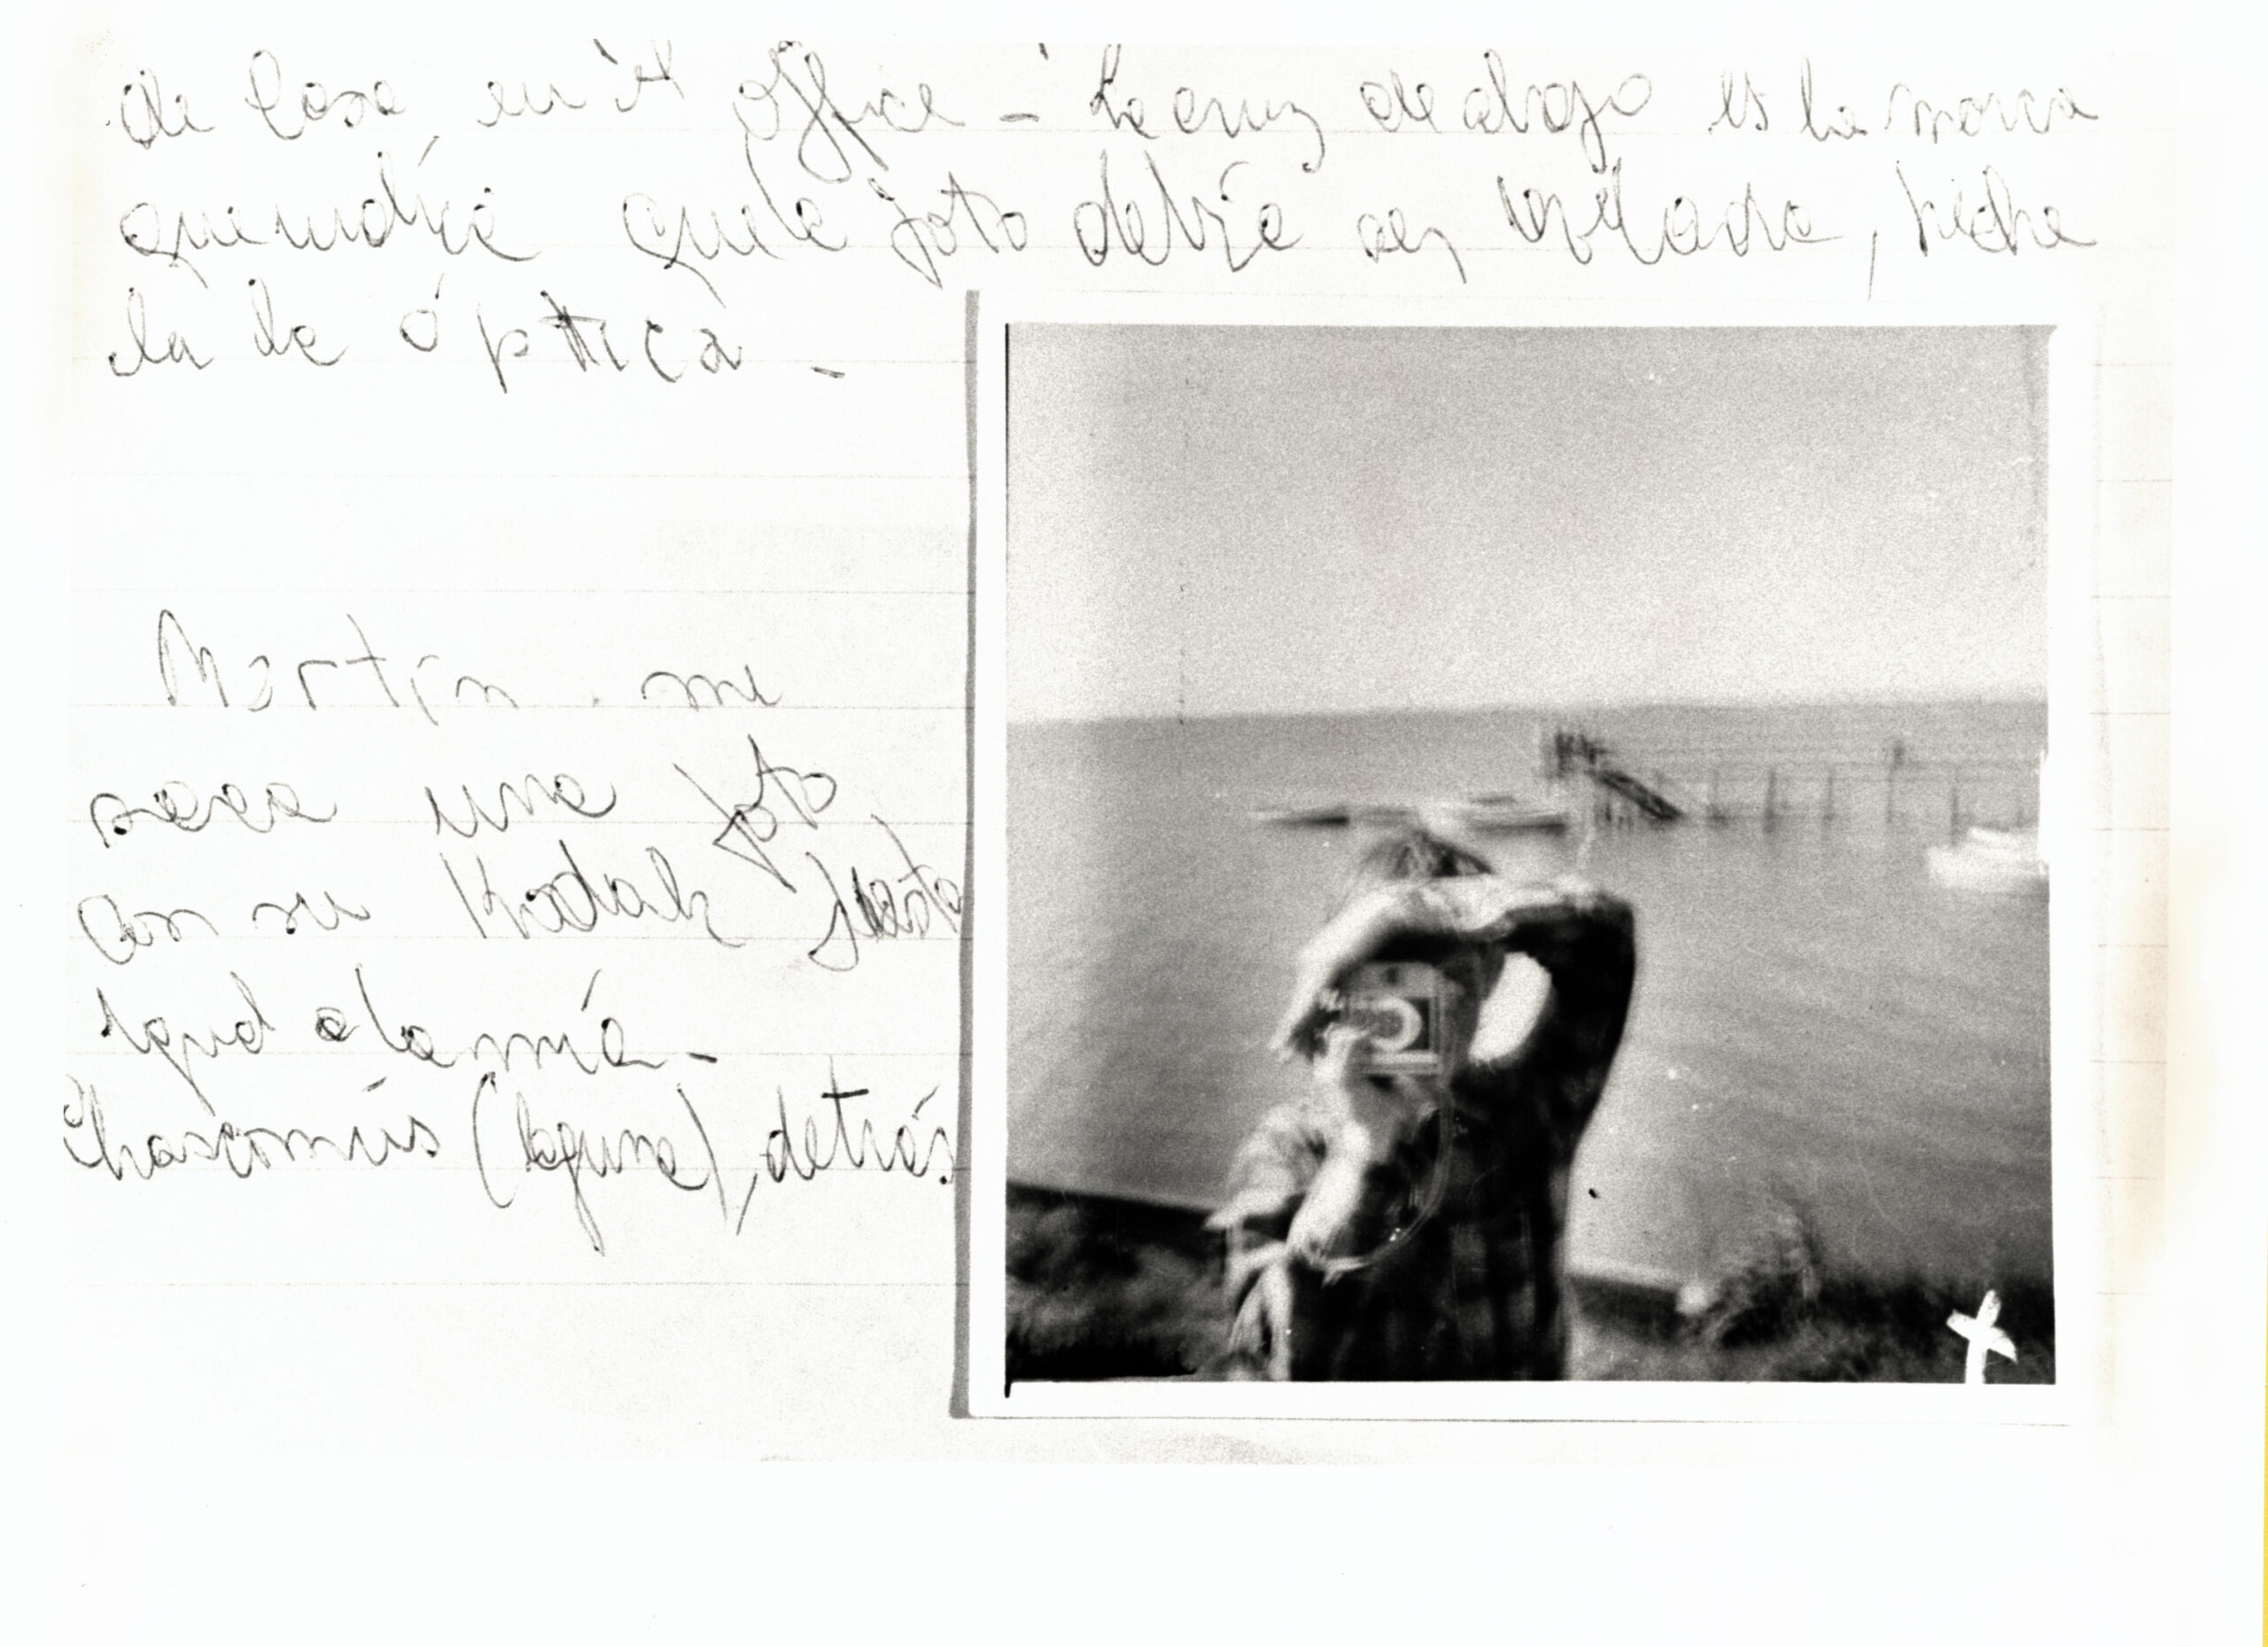 de casa, en el office - La cruz de abajo es la marca
que indica que la foto debía ser copiada, hecha
en la óptica -
Martín me
saca una foto
con su Kodak fiesta,
igual a la mía -
Chascomús (laguna), detrás